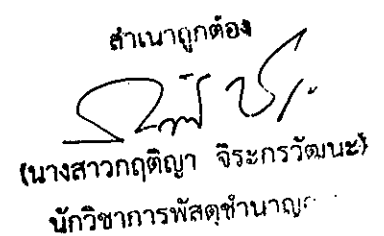 สำเนาถูกต้อง
(นางสาวกฤติญา จิระกรวัฒนะ)
นักวิชาการพัสดุชำนาญ